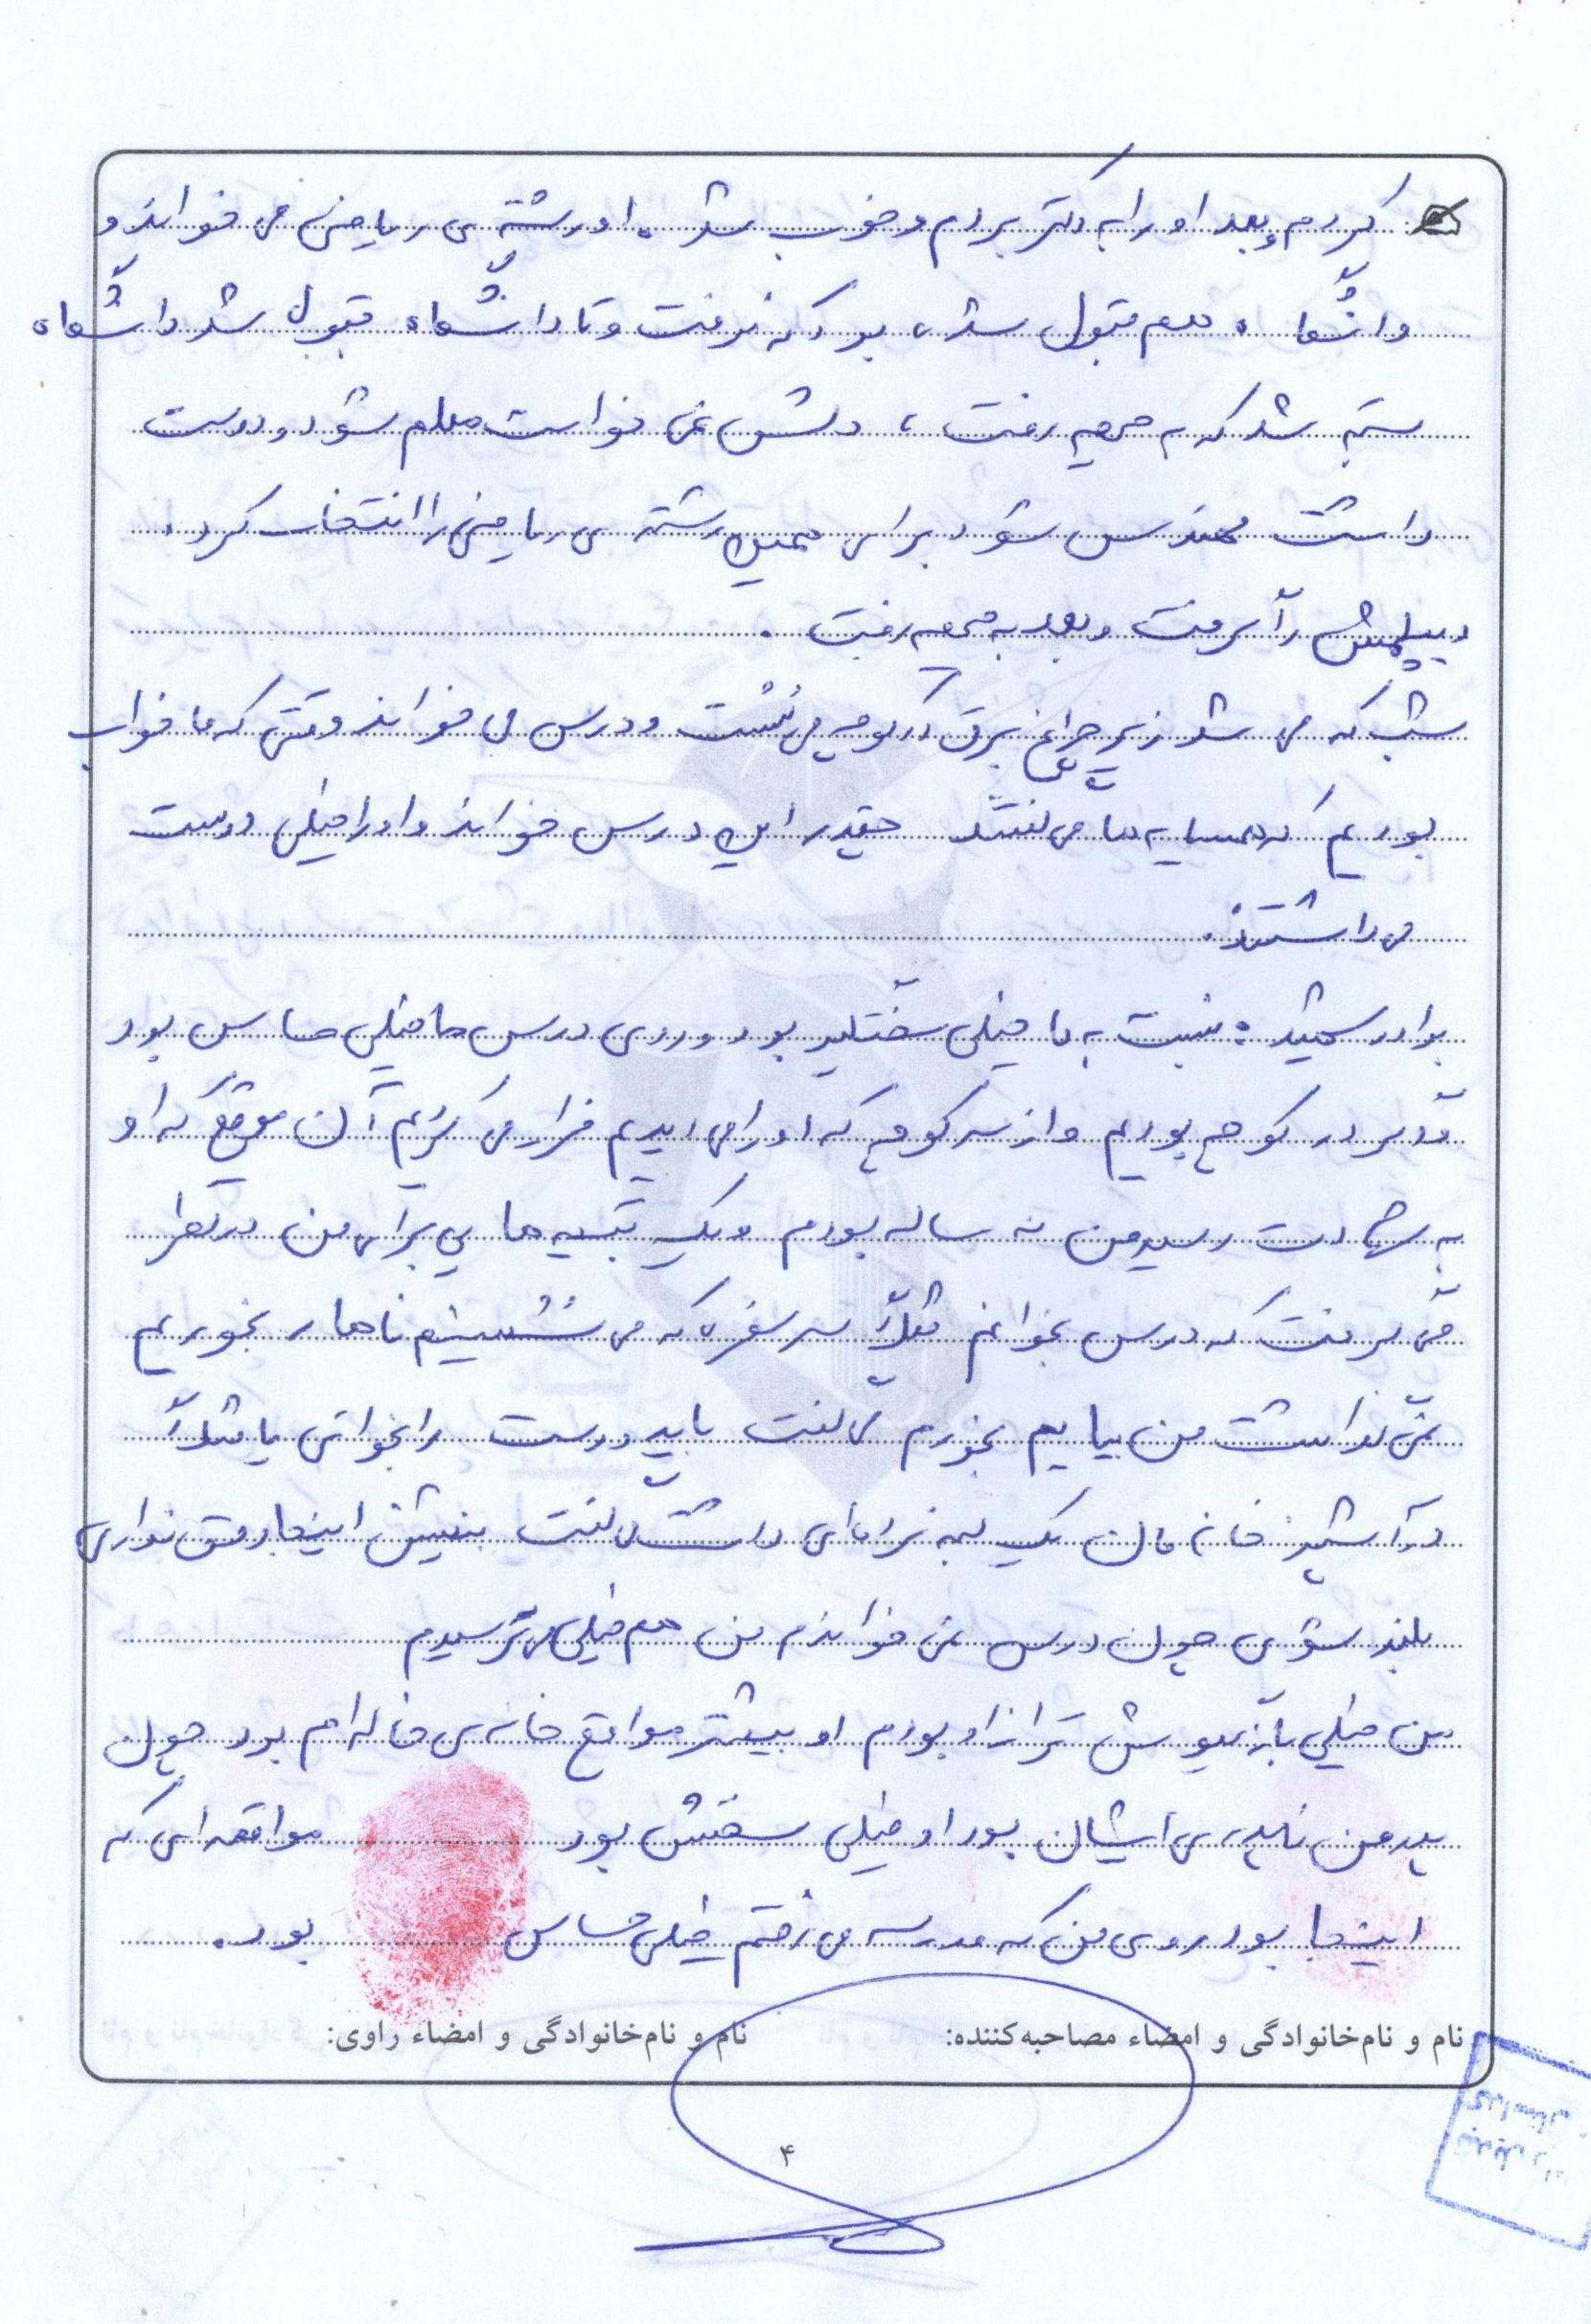 کردم و بعد او را به دکتر بردم و خوب شد. او رشته ی ریاضی می خواند و
دانشگاه هم قبول شده بود که نرفت و تا دانشگاه قبول شد دانشگاه
بسته شد که به جبهه رفت، دلش نمی خواست معلم شود و دوست
داشت مهندس شود برای همین رشته ی ریاضی را انتخاب کرد.
دیپلمش را گرفت و بعد به جبهه رفت.
شب که می شد زیر چراغ برق در کوچه می نشست و درس می خواند وقتی که ما خواب
بودیم که همسایه ها می گفتند چقدر این درس خواند و او را خیلی دوست
می داشتند.
برادر شهید: نسبت به ما خیلی سختگیر بود و روی درس ما خیلی حساس بود
که در کوچه بودیم و از سر کوچه که او را می دیدیم فرار می کردیم آن موقع که او
به شهادت رسید من نه ساله بودم و یک تنبیه هایی برای من در نظر
می گرفت که درس بخوانم مثلاً سر سفره که می نشستیم ناهار بخوریم
نمی گذاشت من بیایم بخورم می گفت باید درست را بخوانی یا مثلاً
در آشپزخانه مان یک لبه نرده ای داشت می گفت بنشین اینجا و حق نداری
بلند شوی چون درس نمی خواندم من هم خیلی می ترسیدم
من خیلی بازیگوش تر از او بودم او بیشتر مواقع خانه ی خاله ام بود چون
پدر من ناپدری ایشان بود او خیلی سختش بود مواقعه ای که
اینجا بود روی من که مدرسه می رفتم خیلی حساس بود.
نام و نام‌خانوادگی و امضاء مصاحبه‌کننده: نام و نام‌خانوادگی و امضاء راوی:
۴